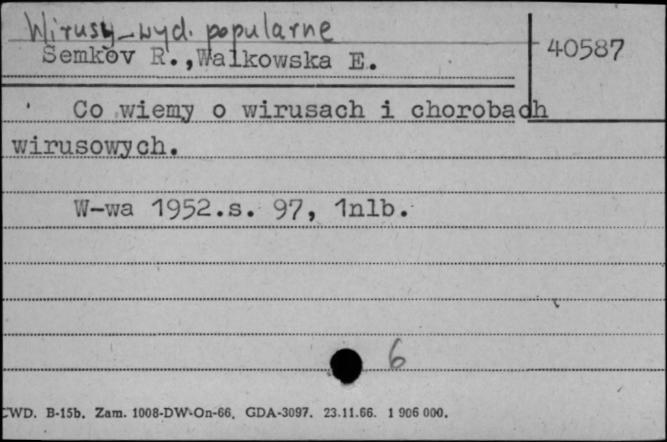 Wirusy-wyd. popularne
Semkov R.,Walkowska E.
40587
Co wiemy o wirusach i chorobach
wirusowych.
W-wa 1952.s. 97, 1nlb.
6
CWD. B-15b. Zam. 1008-DW-On-66. GDA-3097. 23.11.66. 1 906 000.